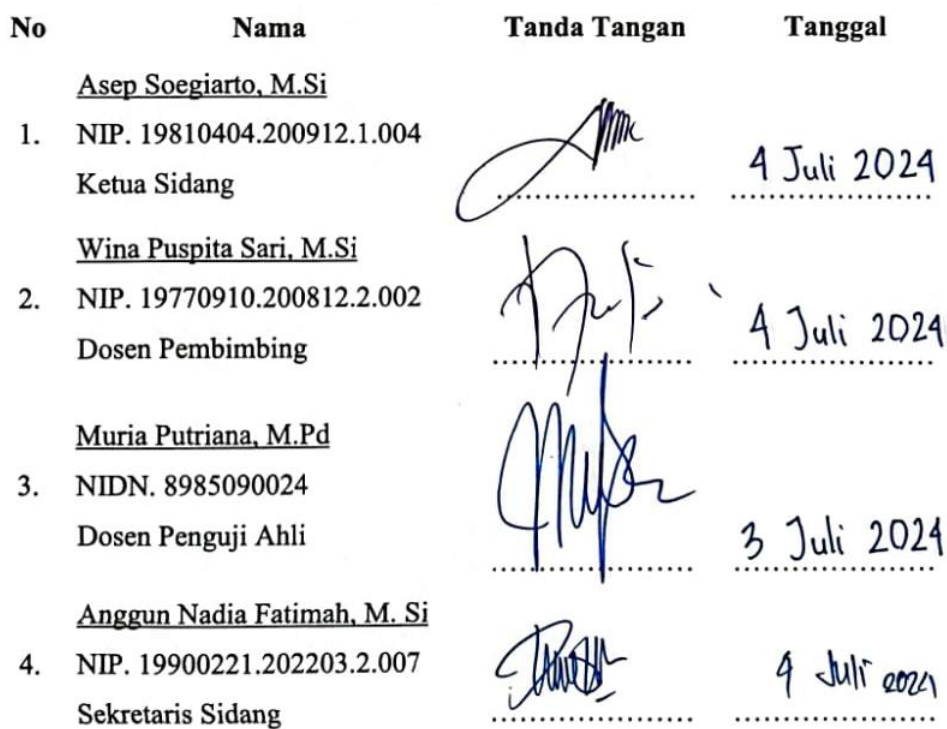 No Nama Tanda Tangan Tanggal
Asep Soegiarto, M.Si
1. NIP. 19810404.200912.1.004
Ketua Sidang
4 Juli 2024
Wina Puspita Sari, M.Si
2. NIP. 19770910.200812.2.002
Dosen Pembimbing
4 Juli 2024
Muria Putriana, M.Pd
3. NIDN. 8985090024
Dosen Penguji Ahli
3 Juli 2024
Anggun Nadia Fatimah, M. Si
4. NIP. 19900221.202203.2.007
4 Juli 2024
Sekretaris Sidang